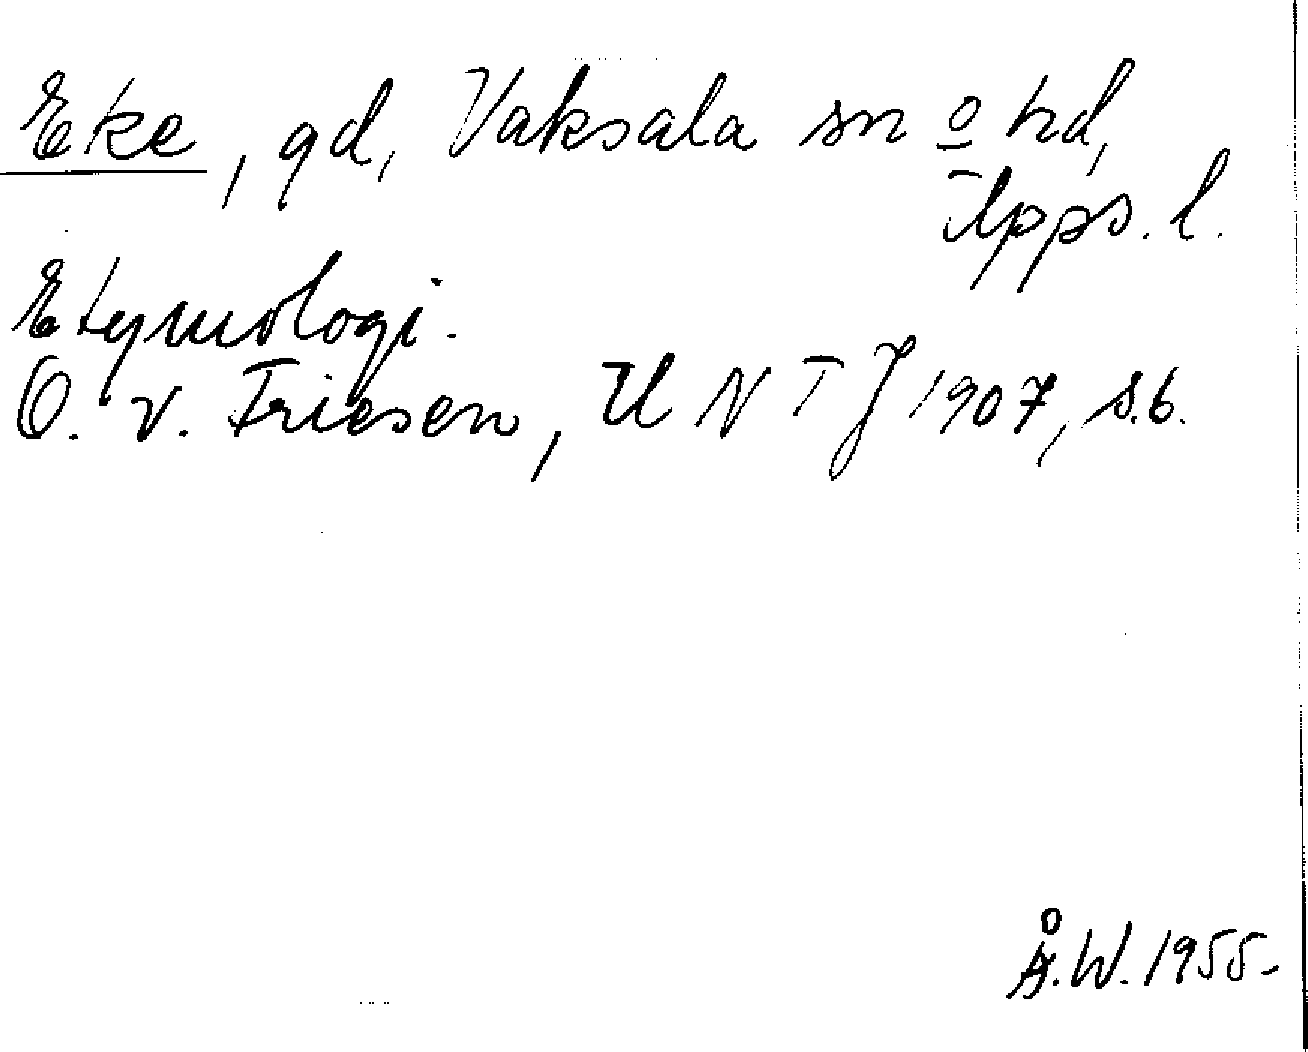 Eke, gd, Vaksala sn o hd,
Upps. l.
Etymologi.
O. v. Friesen, UNTJ 1907, s.6.
Å.W. 1955.